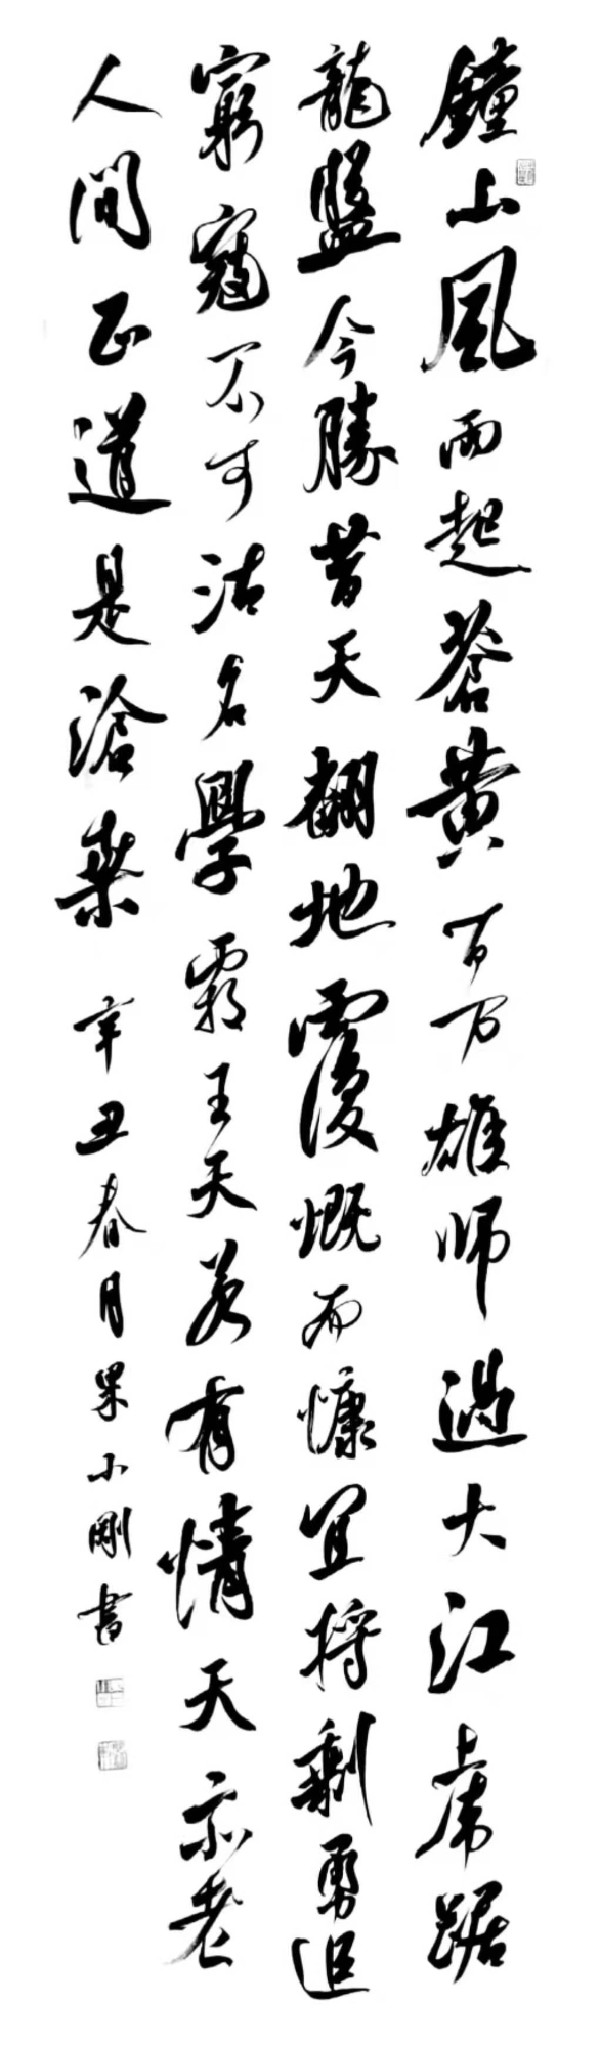 鐘山風雨起蒼黄百万雄師過大江虎踞
龍盤今勝昔天翻地覆慨而慷宜將剩勇追
窮寇不可沽名學霸王天若有情天亦老
人間正道是滄桒 辛丑春月果小剛書